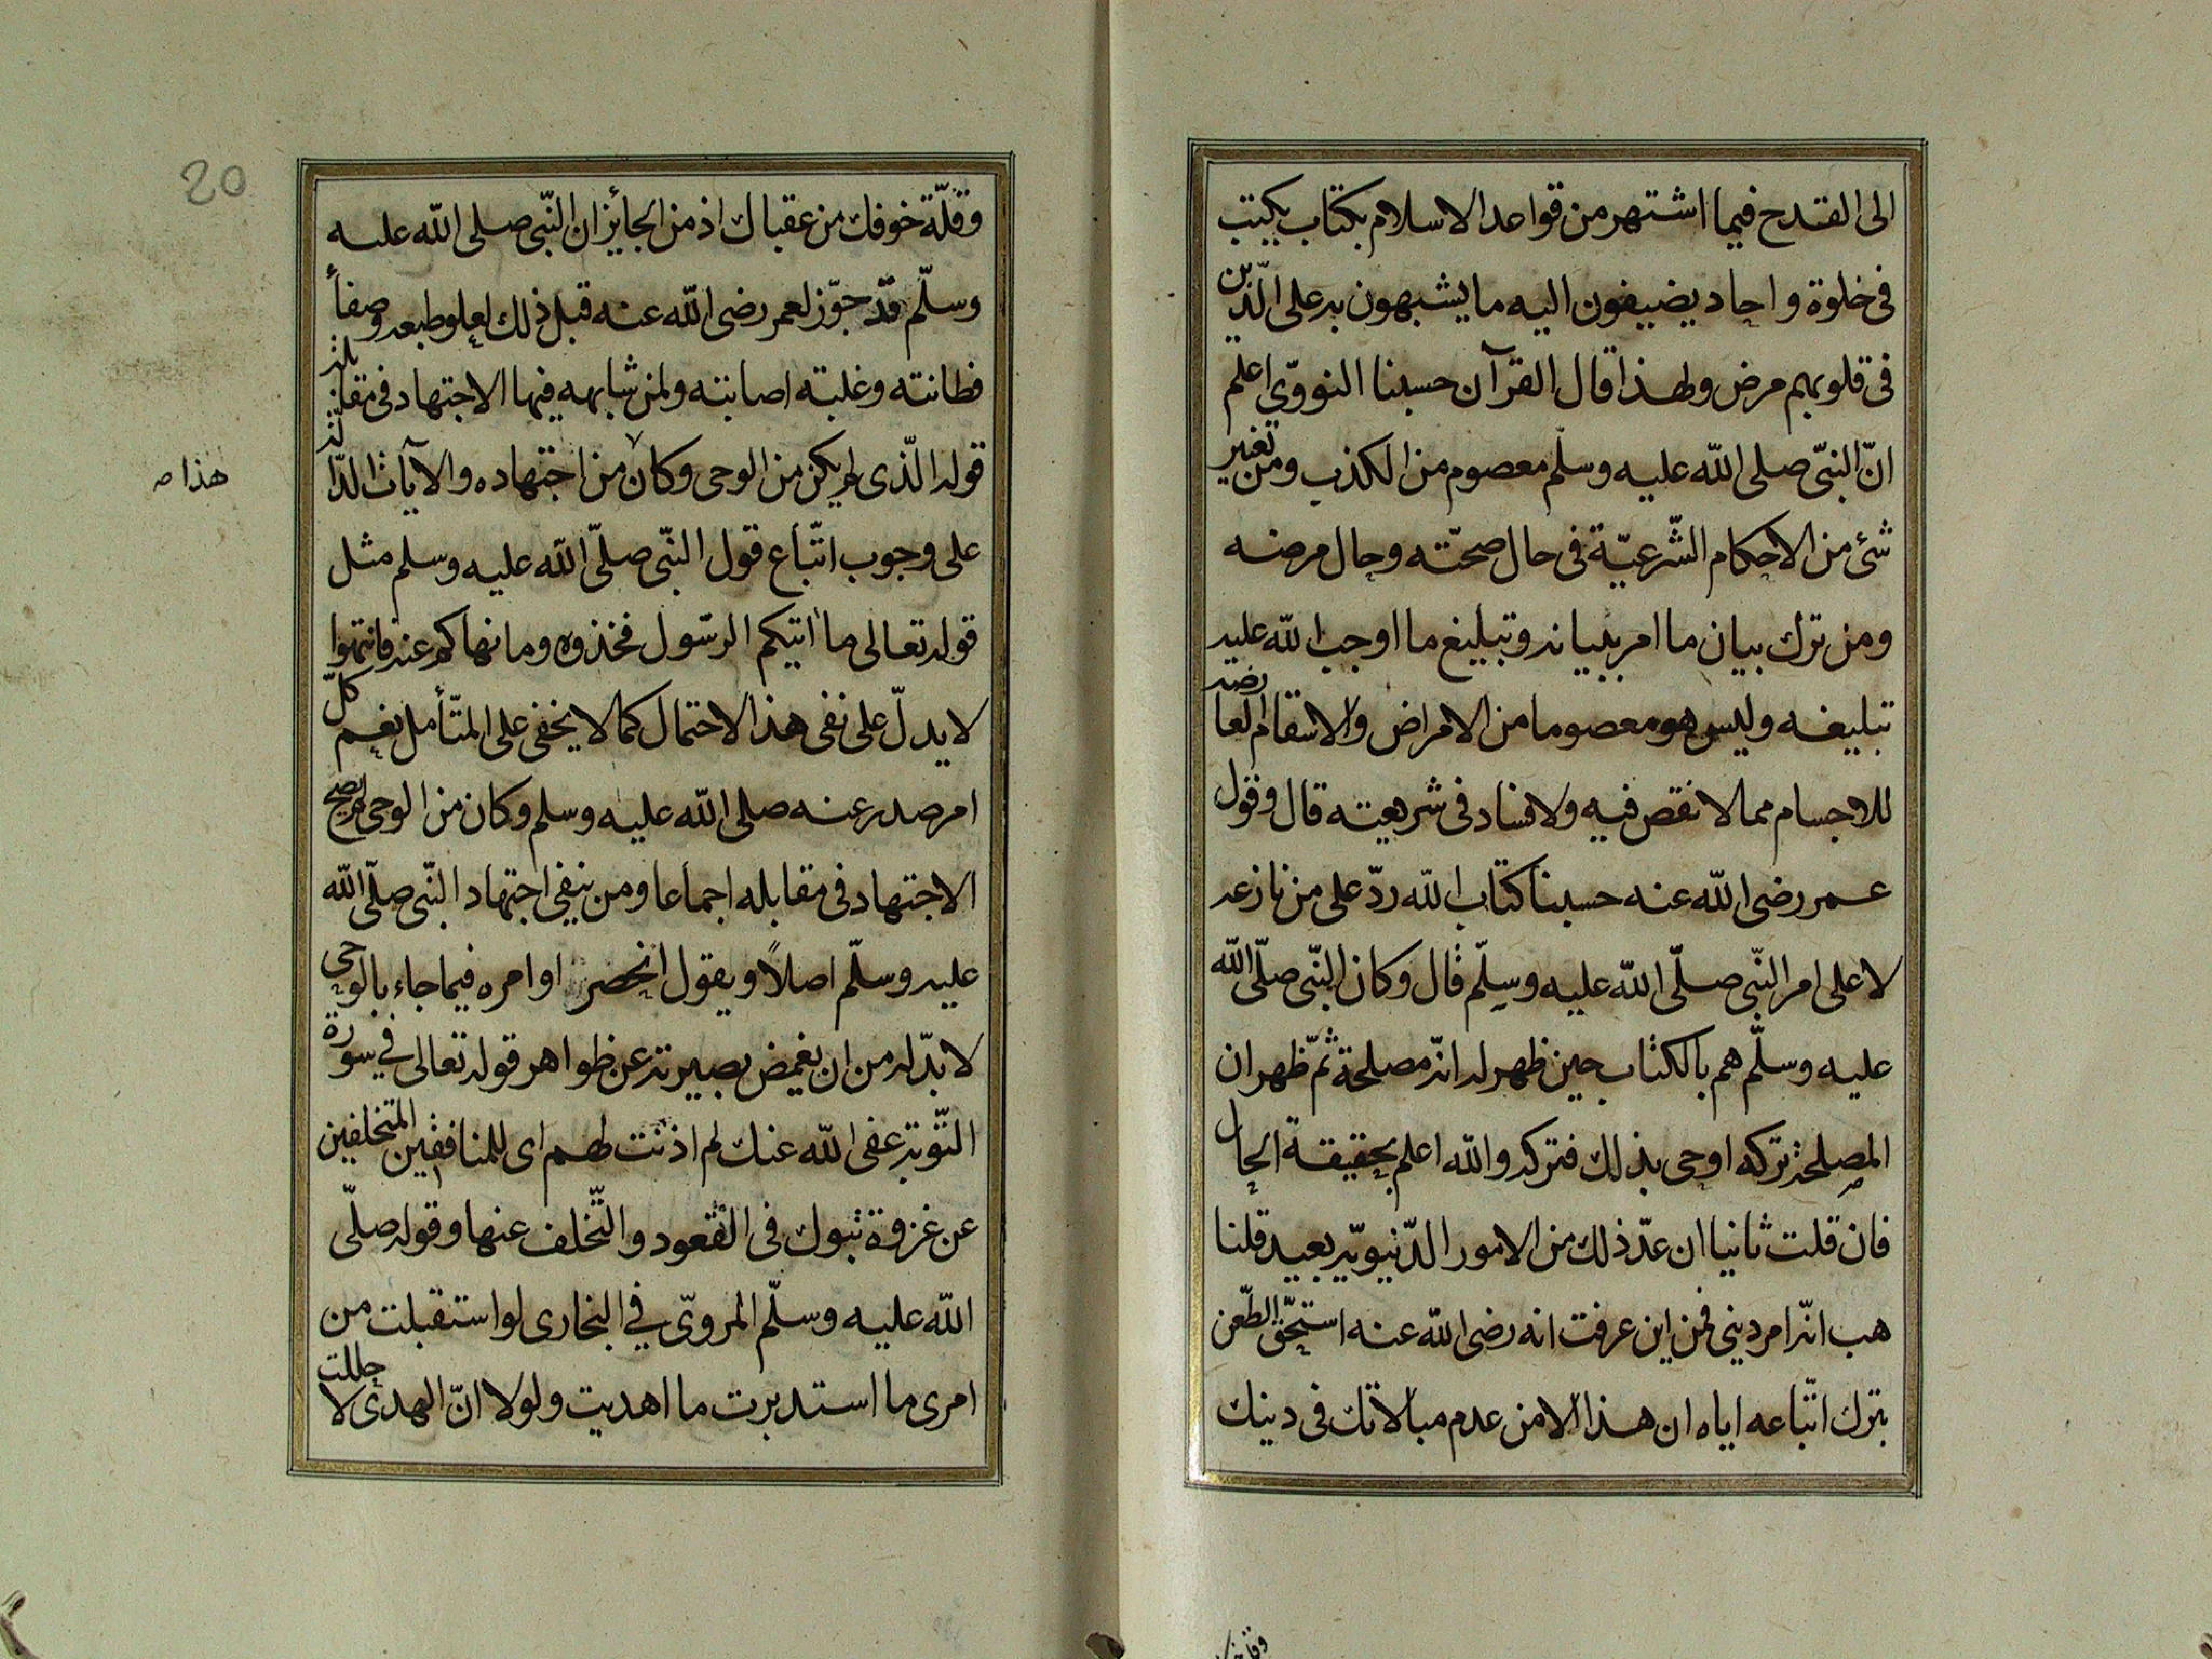 الى القدح فيما اشتهر من قواعد الاسلام بكتاب يكتب
فى خلوة واحاد يضيفون اليه ما يشبهون به على الّذين
فى قلوبهم مرض ولهذا قال القرآن حسبنا النووىّ اعلم
انّ النبىّ صلى اللّه عليه وسلّم معصوم من الكذب ومن تغير
شئ من الاحكام الشّرعيّة فى حال صحّته وحال مرضه
ومن ترك بيان ما امر ببيانه وتبليغ ما اوجب اللّه عليه
تبليغه وليس هو معصوما من الامراض والاسقام العارضه
للاجسام مما لا نقص فيه ولا فساد فى شريعته قال وقول
عمر رضى اللّه عنه حسبنا كتاب اللّه ردّ على من نازعه
لا على امر النّبى صلّى اللّه عليه وسلّم قال وكان النّبى صلّى اللّه
عليه وسلّم هم بالكتاب حين ظهر له انّه مصلحة ثمّ ظهر ان
المصلحة تركه اوحى بذلك فتركه واللّه اعلم بحقيقة الحال
فان قلت ثانيا ان عدّ ذلك من الامور الدّنيويّه بعيد قلنا
هب انّه امر دينى فمن اين عرفت انه رضى اللّه عنه استحقّ الطّعن
بترك اتّباعه اياه ان هذا الا من عدم مبالاتك فى دينك
وقلّة
وقلّة خوفك من عقباك اذ من الجائز ان النّبى صلى اللّه عليه
وسلّم قد جوّز لعمر رضى اللّه عنه قبل ذلك لعلو طبعه وصفأ
فطانته وغلبته اصابته ولمن شابهه فيها الاجتهاد فى مقابلة
قوله الّذى لم يكن من الوحى وكان من اجتهاده والآيات الدّالّة
هذا صه
على وجوب اتّباع قول النّبى صلّى اللّه عليه وسلم مثل
قوله تعالى ما اتيكم الرسّول فخذوه وما نهاكم عنه فانتهوا
لا يدلّ على نفى هذا الاحتمال كما لا يخفى على المتّأمل نعم كلّ
امر صدر عنه صلى اللّه عليه وسلم وكان من الوحى لم يصح
الاجتهاد فى مقابله اجماعا ومن ينفى اجتهاد النّبى صلّى اللّه
عليه وسلّم اصلاً ويقول انحصر اوامره فيما جاء بالوحى
لا بدّ له من ان يغمض بصيرته عن ظواهر قوله تعالى فى سورة
التّوبة عفى اللّه عنك لم اذنت لهم اى للمنافقين المتخلفين
عن غزوة تبوك فى القعود والتّخلف عنها وقوله صلّى
اللّه عليه وسلّم المروىّ فى البخارى لو استقبلت من
امرى ما استدبرت ما اهديت ولولا انّ الهدى لاحللت
20